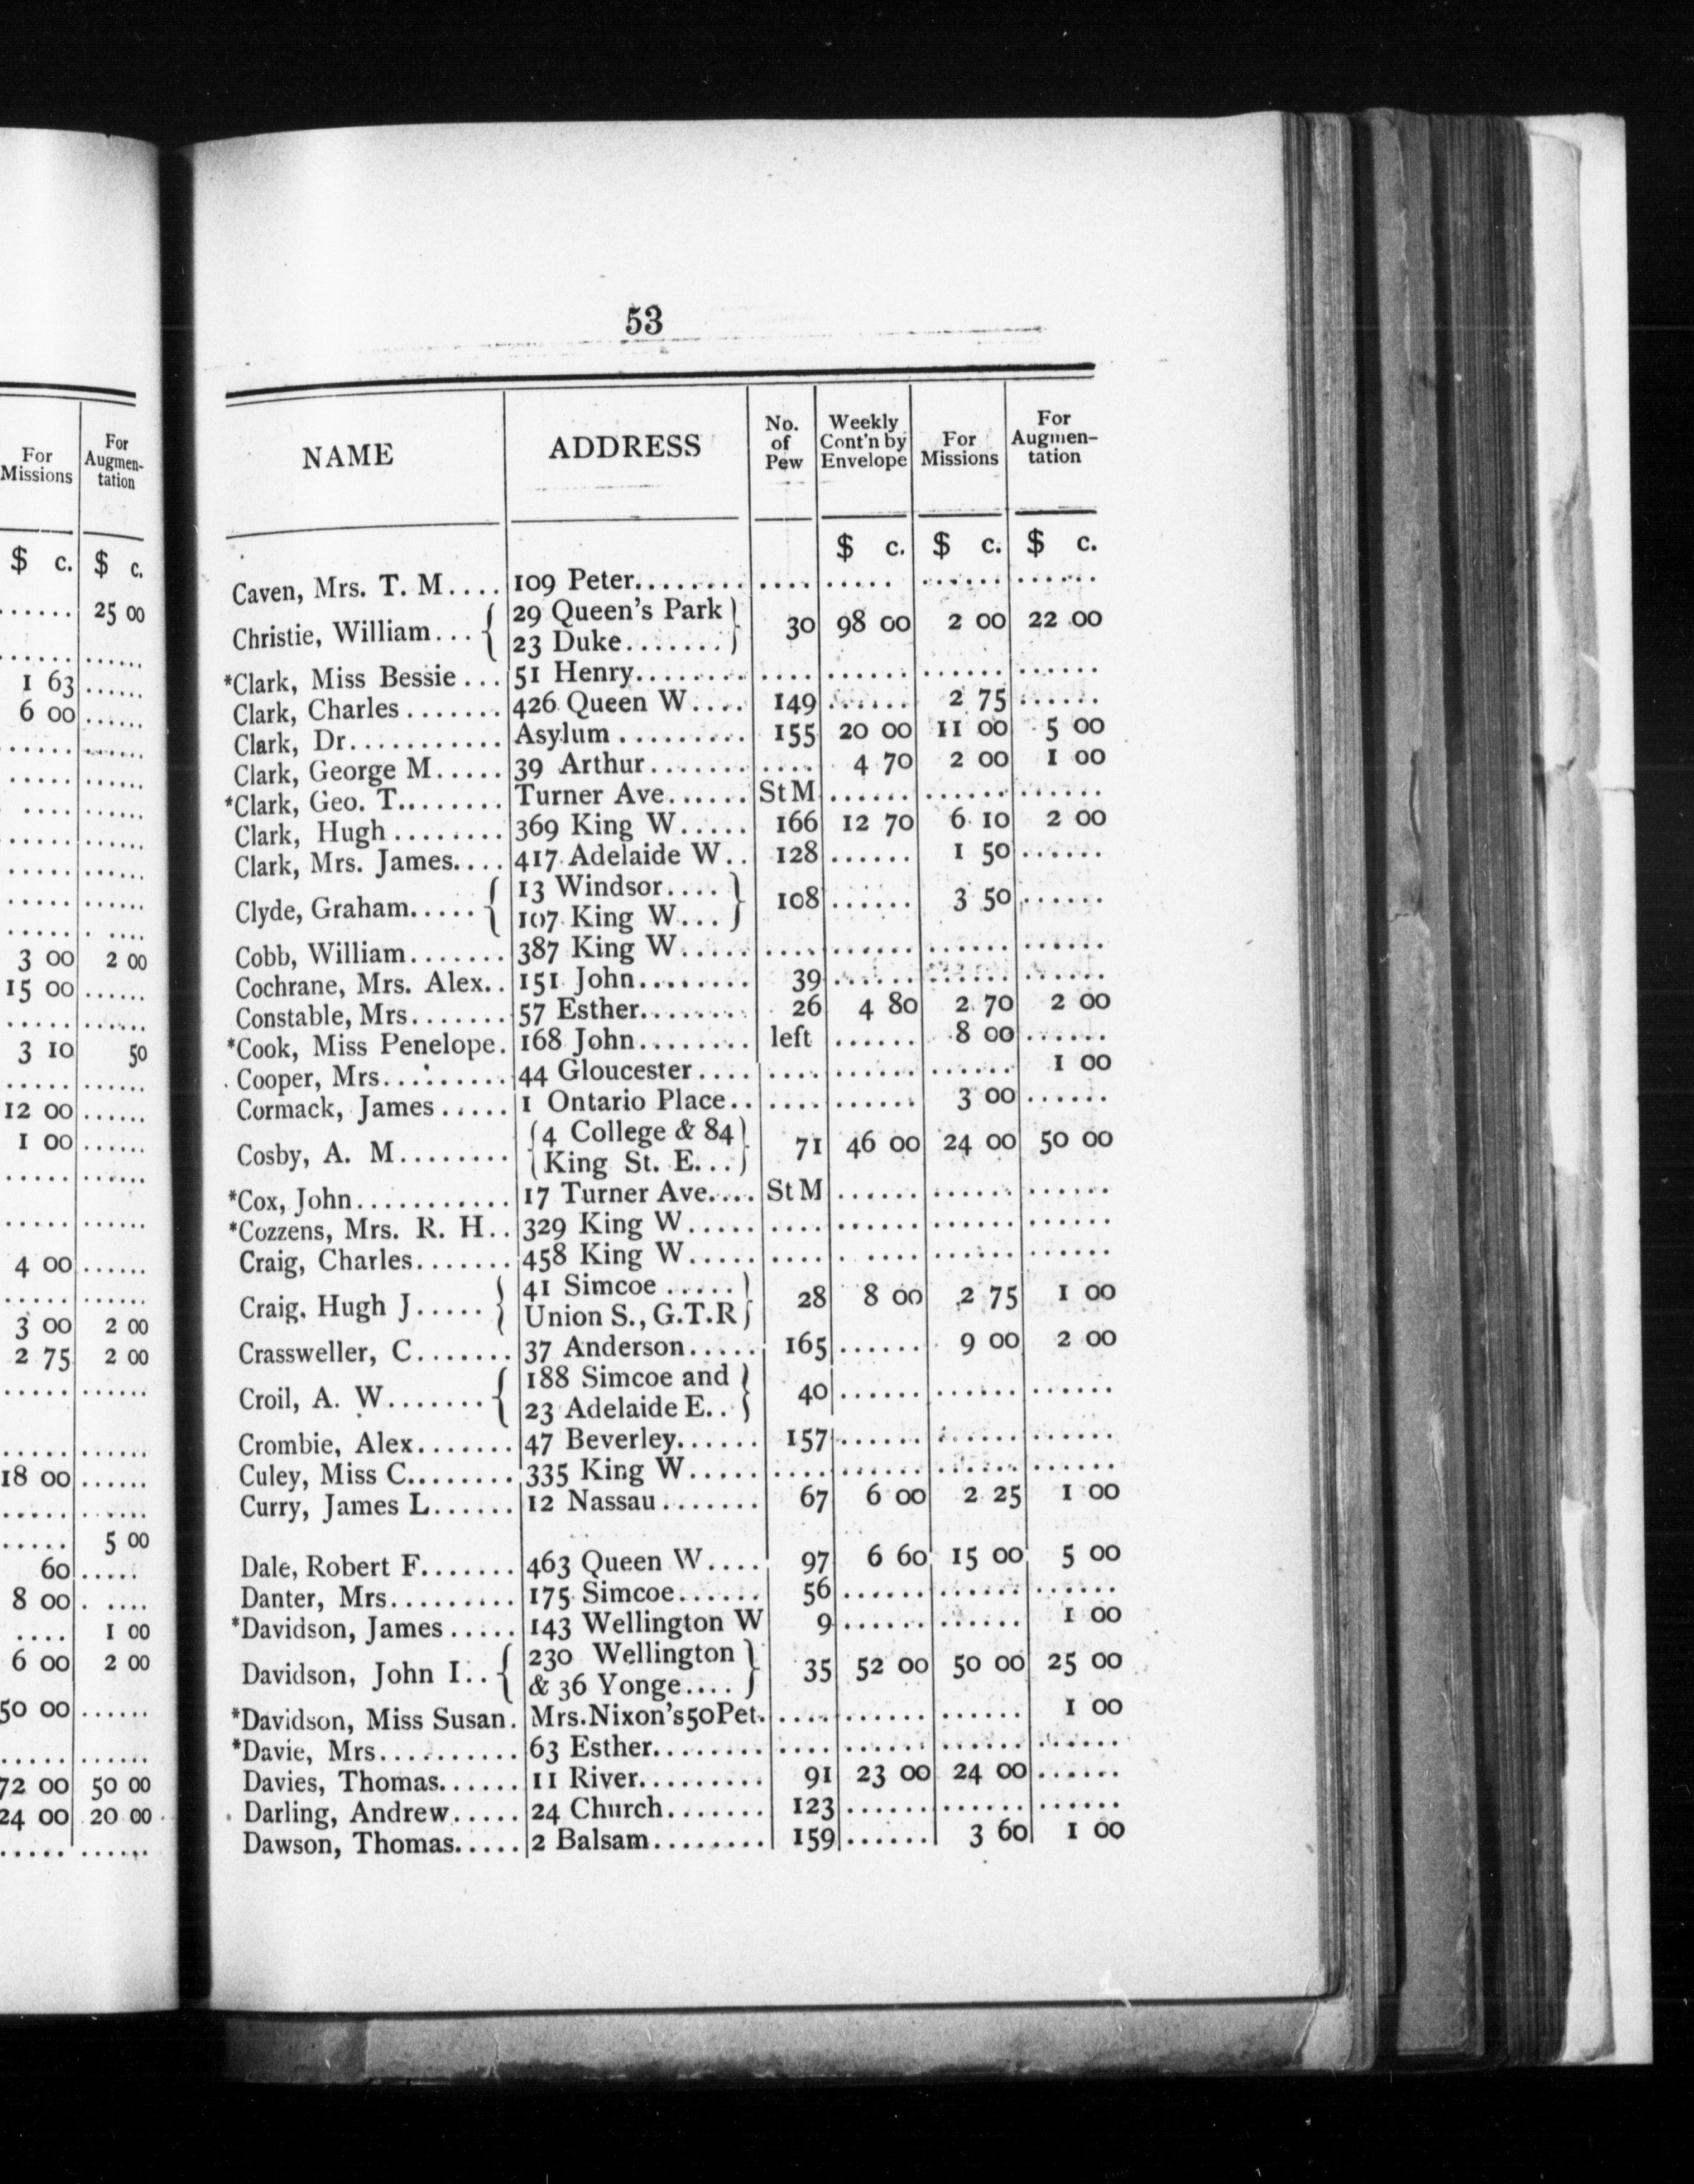 For Missions | For Augmen- tation
$ c. | $ c.
...... | 25 00
...... | ......
1 63 | ......
6 00 | ......
...... | ......
...... | ......
...... | ......
...... | ......
...... | ......
...... | ......
...... | ......
3 00 | 2 00
15 00 | ......
...... | ......
3 10 | 50
...... | ......
12 00 | ......
1 00 | ......
...... | ......
...... | ......
4 00 | ......
...... | ......
3 00 | 2 00
2 75 | 2 00
...... | ......
...... | ......
18 00 | ......
...... | ......
...... | 5 00
60 | ......
8 00 | ......
.... | 1 00
6 00 | 2 00
50 00 | ......
...... | ......
72 00 | 50 00
24 00 | 20 00
...... | ......
53
NAME | ADDRESS | No. of Pew | Weekly Cont'n by Envelope | For Missions | For Augmen- tation
$ c. | $ c. | $ c.
Caven, Mrs. T. M.... | 109 Peter........ | .... | ..... | ...... | ......
Christie, William... { 29 Queen's Park } 30 | 98 00 | 2 00 | 22 00
23 Duke.......
*Clark, Miss Bessie ... | 51 Henry........ | .... | ...... | ...... | ......
Clark, Charles ....... | 426 Queen W.... | 149 | ...... | 2 75 | ......
Clark, Dr........... | Asylum ......... | 155 | 20 00 | 11 00 | 5 00
Clark, George M..... | 39 Arthur....... | .... | 4 70 | 2 00 | 1 00
*Clark, Geo. T........ | Turner Ave...... | St M | ...... | ...... | ......
Clark, Hugh ........ | 369 King W..... | 166 | 12 70 | 6 10 | 2 00
Clark, Mrs. James.... | 417 Adelaide W.. | 128 | ...... | 1 50 | ......
Clyde, Graham..... { 13 Windsor.... } 108 | ...... | 3 50 | ......
107 King W...
Cobb, William....... | 387 King W..... | .... | ...... | ...... | ......
Cochrane, Mrs. Alex.. | 151 John........ | 39 | ...... | ...... | ......
Constable, Mrs....... | 57 Esther........ | 26 | 4 80 | 2 70 | 2 00
*Cook, Miss Penelope. | 168 John........ | left | ...... | 8 00 | ......
Cooper, Mrs......... | 44 Gloucester.... | .... | ...... | ...... | 1 00
Cormack, James ..... | 1 Ontario Place.. | .... | ...... | 3 00 | ......
Cosby, A. M........ | { 4 College & 84 } 71 | 46 00 | 24 00 | 50 00
King St. E...
*Cox, John........... | 17 Turner Ave.... | St M | ...... | ...... | ......
*Cozzens, Mrs. R. H.. | 329 King W..... | .... | ...... | ...... | ......
Craig, Charles....... | 458 King W..... | .... | .... | ...... | ......
Craig, Hugh J..... { 41 Simcoe ...... } 28 | 8 00 | 2 75 | 1 00
Union S., G.T.R
Crassweller, C....... | 37 Anderson..... | 165 | ...... | 9 00 | 2 00
Croil, A. W....... { 188 Simcoe and } 40 | ...... | ...... | ......
23 Adelaide E..
Crombie, Alex....... | 47 Beverley...... | 157 | ...... | ...... | ......
Culey, Miss C........ | 335 King W..... | .... | ...... | ...... | ......
Curry, James L...... | 12 Nassau....... | 67 | 6 00 | 2 25 | 1 00
Dale, Robert F....... | 463 Queen W.... | 97 | 6 60 | 15 00 | 5 00
Danter, Mrs......... | 175 Simcoe...... | 56 | ...... | ...... | ......
*Davidson, James ..... | 143 Wellington W | 9 | ...... | ...... | 1 00
Davidson, John I.. { 230 Wellington } 35 | 52 00 | 50 00 | 25 00
& 36 Yonge....
*Davidson, Miss Susan. | Mrs.Nixon's50Pet. | .... | ...... | ...... | 1 00
*Davie, Mrs.......... | 63 Esther........ | .... | ...... | ...... | ......
Davies, Thomas...... | 11 River......... | 91 | 23 00 | 24 00 | ......
Darling, Andrew..... | 24 Church....... | 123 | ...... | ...... | ......
Dawson, Thomas..... | 2 Balsam........ | 159 | ...... | 3 60 | 1 00